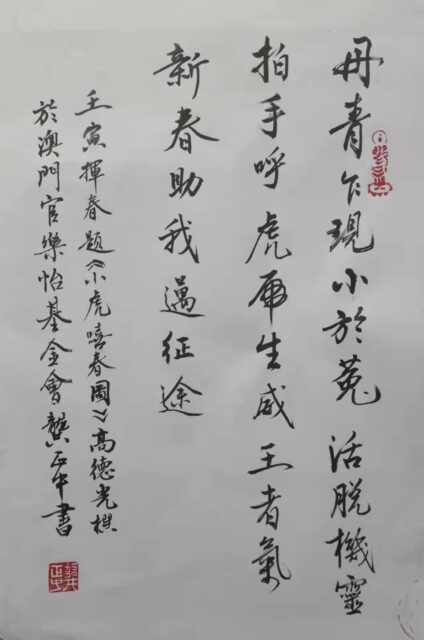 丹青乍現小於菟活脫機靈
拍手呼虎虎生威王者氣
新春助我邁征途
壬寅揮春題《小虎嘻春圖》高德光撰
於澳門官樂怡基金會龔正中書